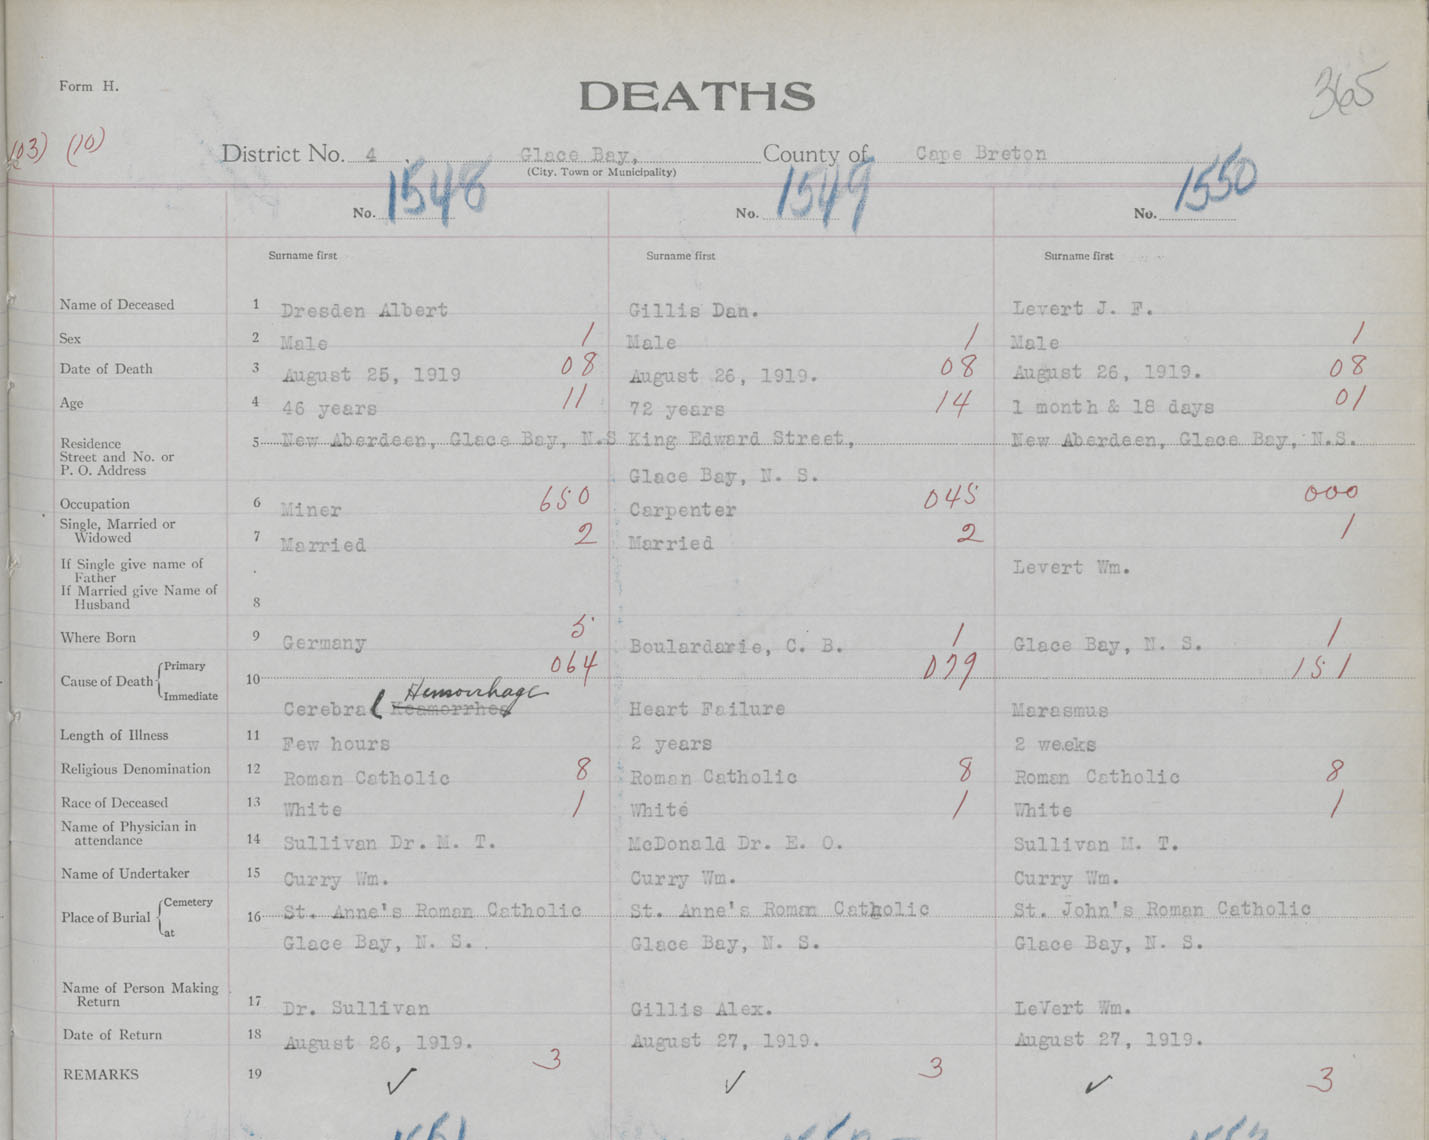 Form H.
DEATHS
365
(03) (10)
District No. 4 Glace Bay, County of Cape Breton
(City, Town or Municipality)
No. 1548 No. 1549 No. 1550
Surname first Surname first Surname first
Name of Deceased 1 Dresden Albert Gillis Dan. Levert J. F.
Sex 2 Male 1 Male 1 Male 1
Date of Death 3 August 25, 1919 08 August 26, 1919. 08 August 26, 1919. 08
Age 4 46 years 11 72 years 14 1 month & 18 days 01
Residence 5 New Aberdeen, Glace Bay, N.S King Edward Street, New Aberdeen, Glace Bay, N.S.
Street and No. or
P. O. Address Glace Bay, N. S.
Occupation 6 Miner 650 Carpenter 045 000
Single, Married or
Widowed 7 Married 2 Married 2 1
If Single give name of
Father Levert Wm.
If Married give Name of
Husband 8
Where Born 9 Germany 5 Boulardarie, C. B. 1 Glace Bay, N. S. 1
Cause of Death Primary 10 064 079 151
Immediate Cerebral Hemorrhage Heart Failure Marasmus
Length of Illness 11 Few hours 2 years 2 weeks
Religious Denomination 12 Roman Catholic 8 Roman Catholic 8 Roman Catholic 8
Race of Deceased 13 White 1 White 1 White 1
Name of Physician in
attendance 14 Sullivan Dr. M. T. McDonald Dr. E. O. Sullivan M. T.
Name of Undertaker 15 Curry Wm. Curry Wm. Curry Wm.
Place of Burial Cemetery 16 St. Anne's Roman Catholic St. Anne's Roman Catholic St. John's Roman Catholic
at Glace Bay, N. S. Glace Bay, N. S. Glace Bay, N. S.
Name of Person Making
Return 17 Dr. Sullivan Gillis Alex. LeVert Wm.
Date of Return 18 August 26, 1919. August 27, 1919. August 27, 1919.
REMARKS 19 ✓ 3 ✓ 3 ✓ 3